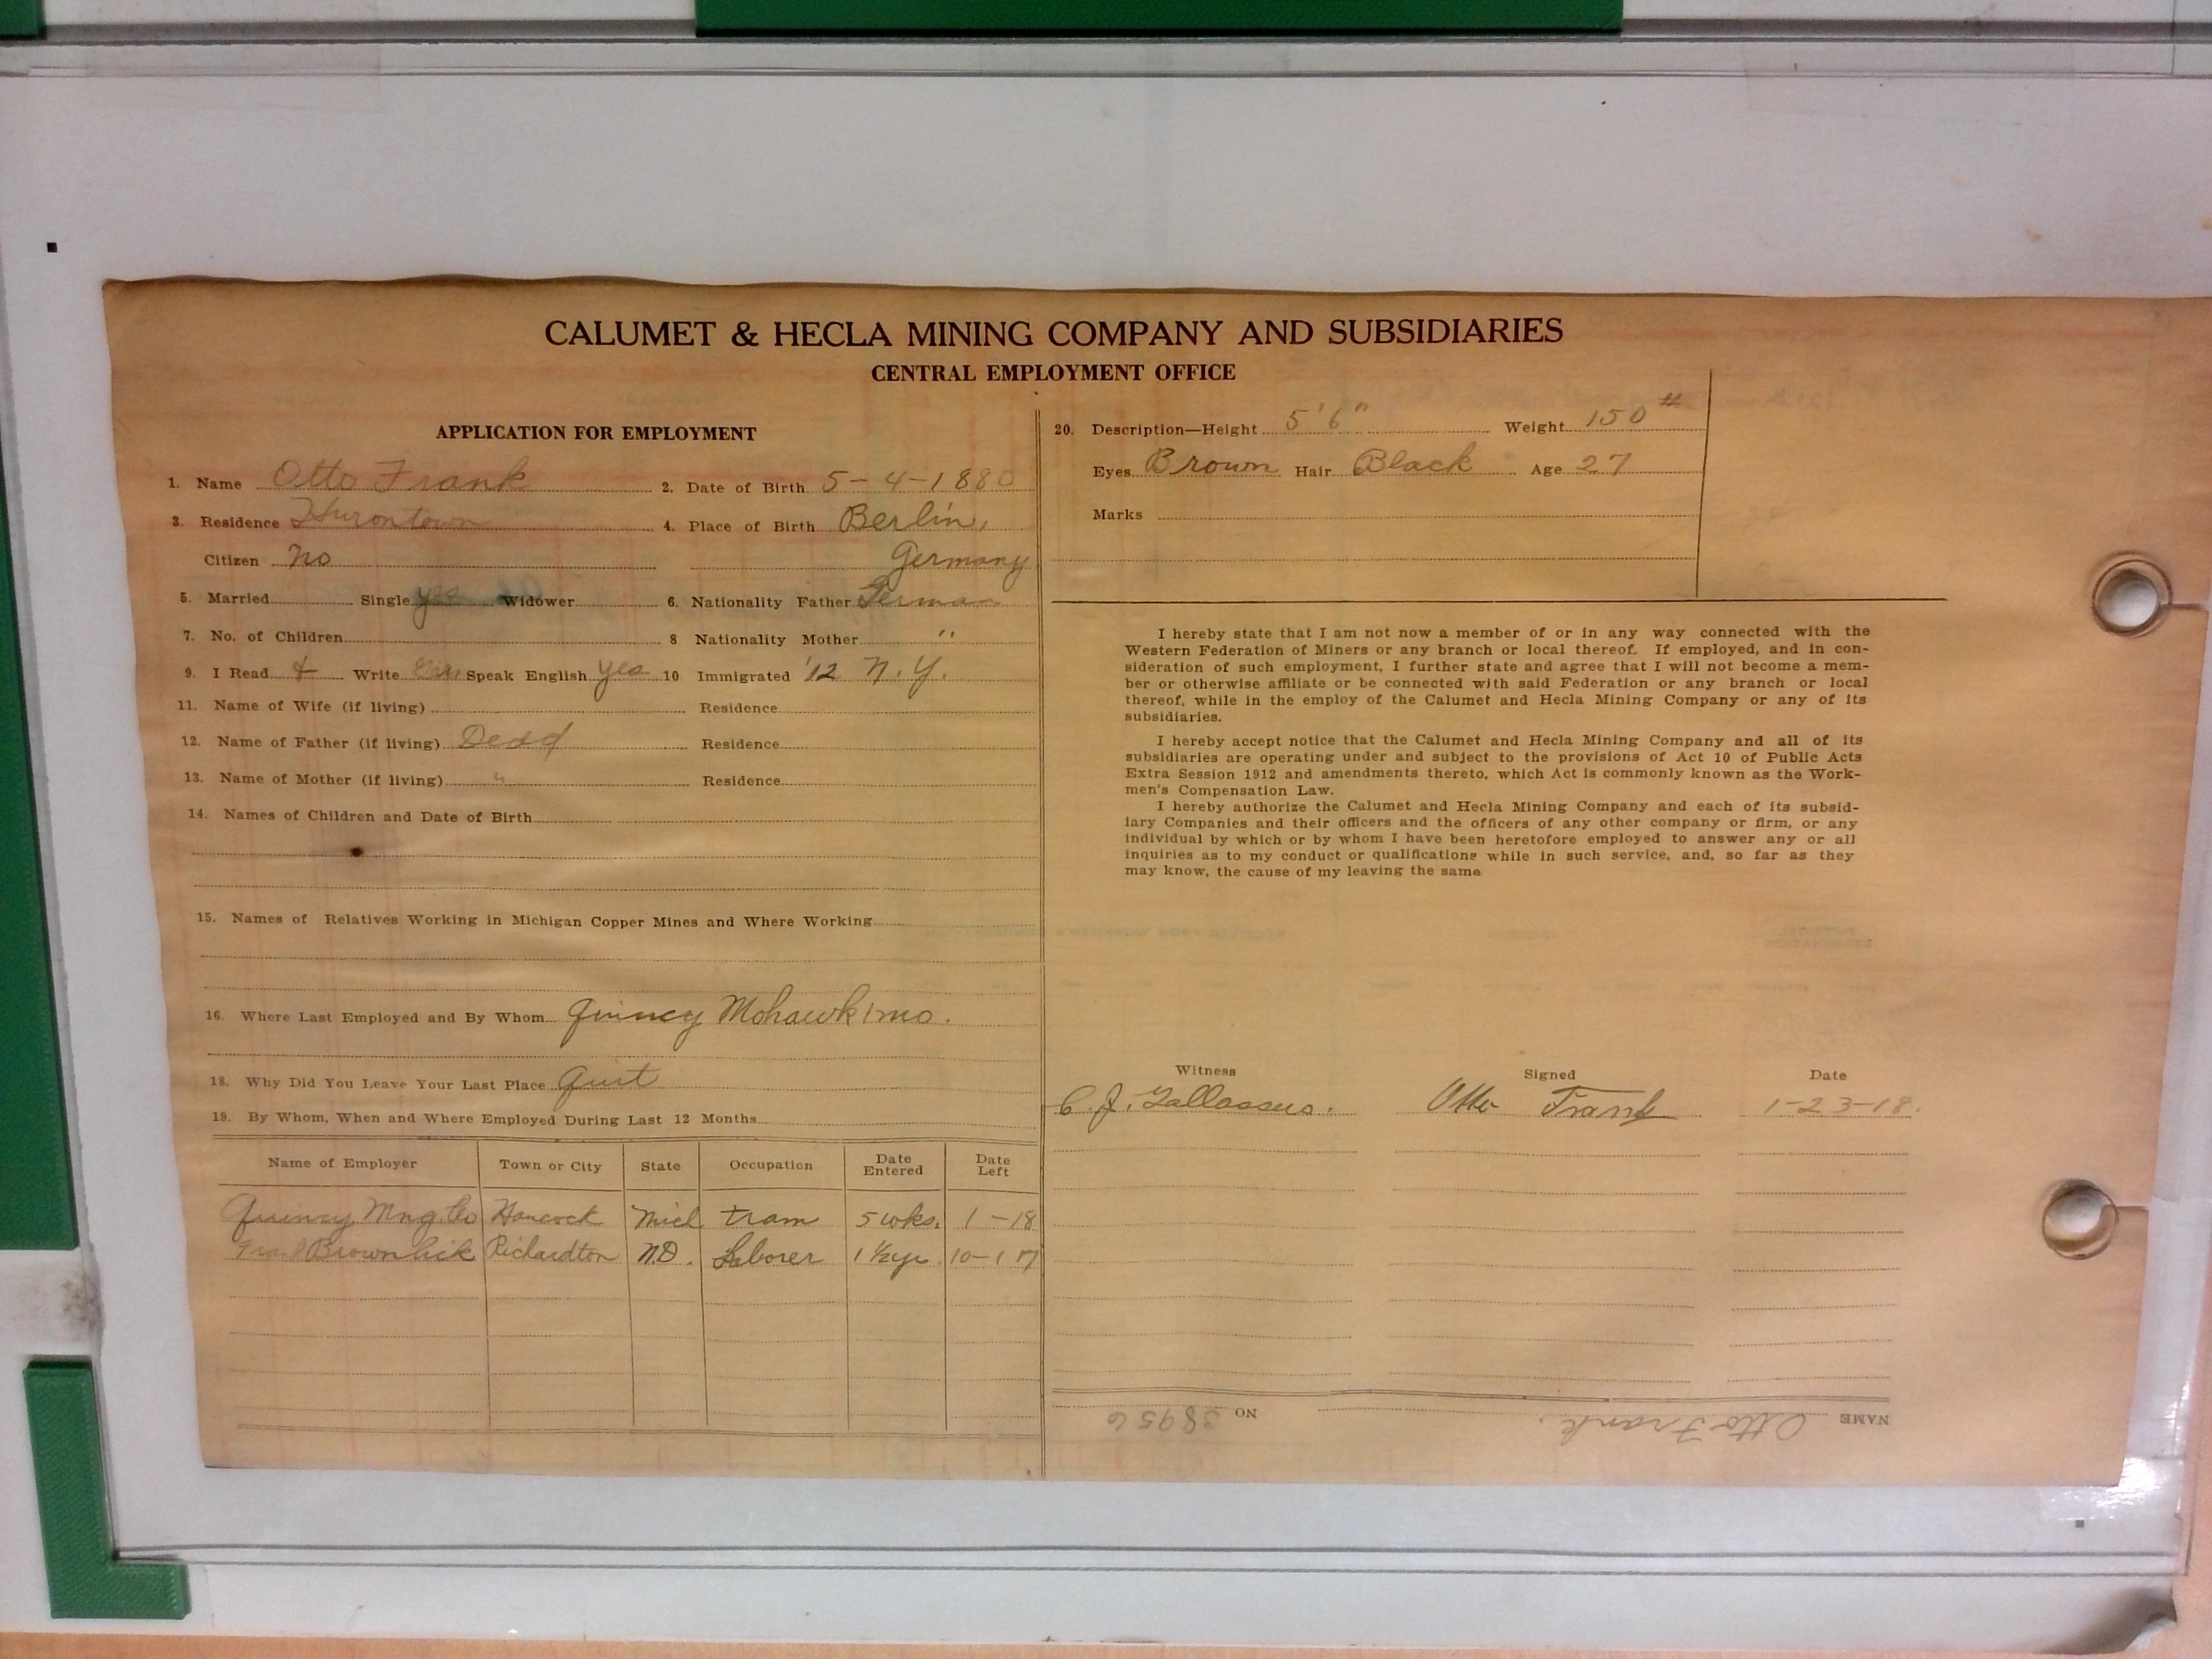 CALUMET & HECLA MINING COMPANY AND SUBSIDIARIES
CENTRAL EMPLOYMENT OFFICE
APPLICATION FOR EMPLOYMENT
1. Name Otto Frank 2. Date of Birth 5-4-1880
3. Residence Hurontown 4. Place of Birth Berlin,
Citizen No Germany
5. Married Single yes Widower 6. Nationality Father German
7. No. of Children 8 Nationality Mother "
9. I Read & Write Speak English yes 10 Immigrated '12 N.Y.
11. Name of Wife (if living) Residence
12. Name of Father (if living) Dead Residence
13. Name of Mother (if living) " Residence
14. Names of Children and Date of Birth
15. Names of Relatives Working in Michigan Copper Mines and Where Working
16. Where Last Employed and By Whom Quincy Mohawk 1 mo.
18. Why Did You Leave Your Last Place Quit
19. By Whom, When and Where Employed During Last 12 Months
Name of Employer Town or City State Occupation Date Entered Date Left
Quincy Mng. Co Hancock Mich tram 5 wks. 1-18
Richardton N.D. Laborer 1 ½ yr. 10-1 17
20. Description—Height 5' 6" Weight 150 #
Eyes Brown Hair Black Age 27
Marks
I hereby state that I am not now a member of or in any way connected with the
Western Federation of Miners or any branch or local thereof. If employed, and in con-
sideration of such employment, I further state and agree that I will not become a mem-
ber or otherwise affiliate or be connected with said Federation or any branch or local
thereof, while in the employ of the Calumet and Hecla Mining Company or any of its
subsidiaries.
I hereby accept notice that the Calumet and Hecla Mining Company and all of its
subsidiaries are operating under and subject to the provisions of Act 10 of Public Acts
Extra Session 1912 and amendments thereto, which Act is commonly known as the Work-
men's Compensation Law.
I hereby authorize the Calumet and Hecla Mining Company and each of its subsid-
iary Companies and their officers and the officers of any other company or firm, or any
individual by which or by whom I have been heretofore employed to answer any or all
inquiries as to my conduct or qualifications while in such service, and, so far as they
may know, the cause of my leaving the same
Witness Signed Date
C. J. Otto Frank 1-23-18.
NAME Otto Frank. NO 38956